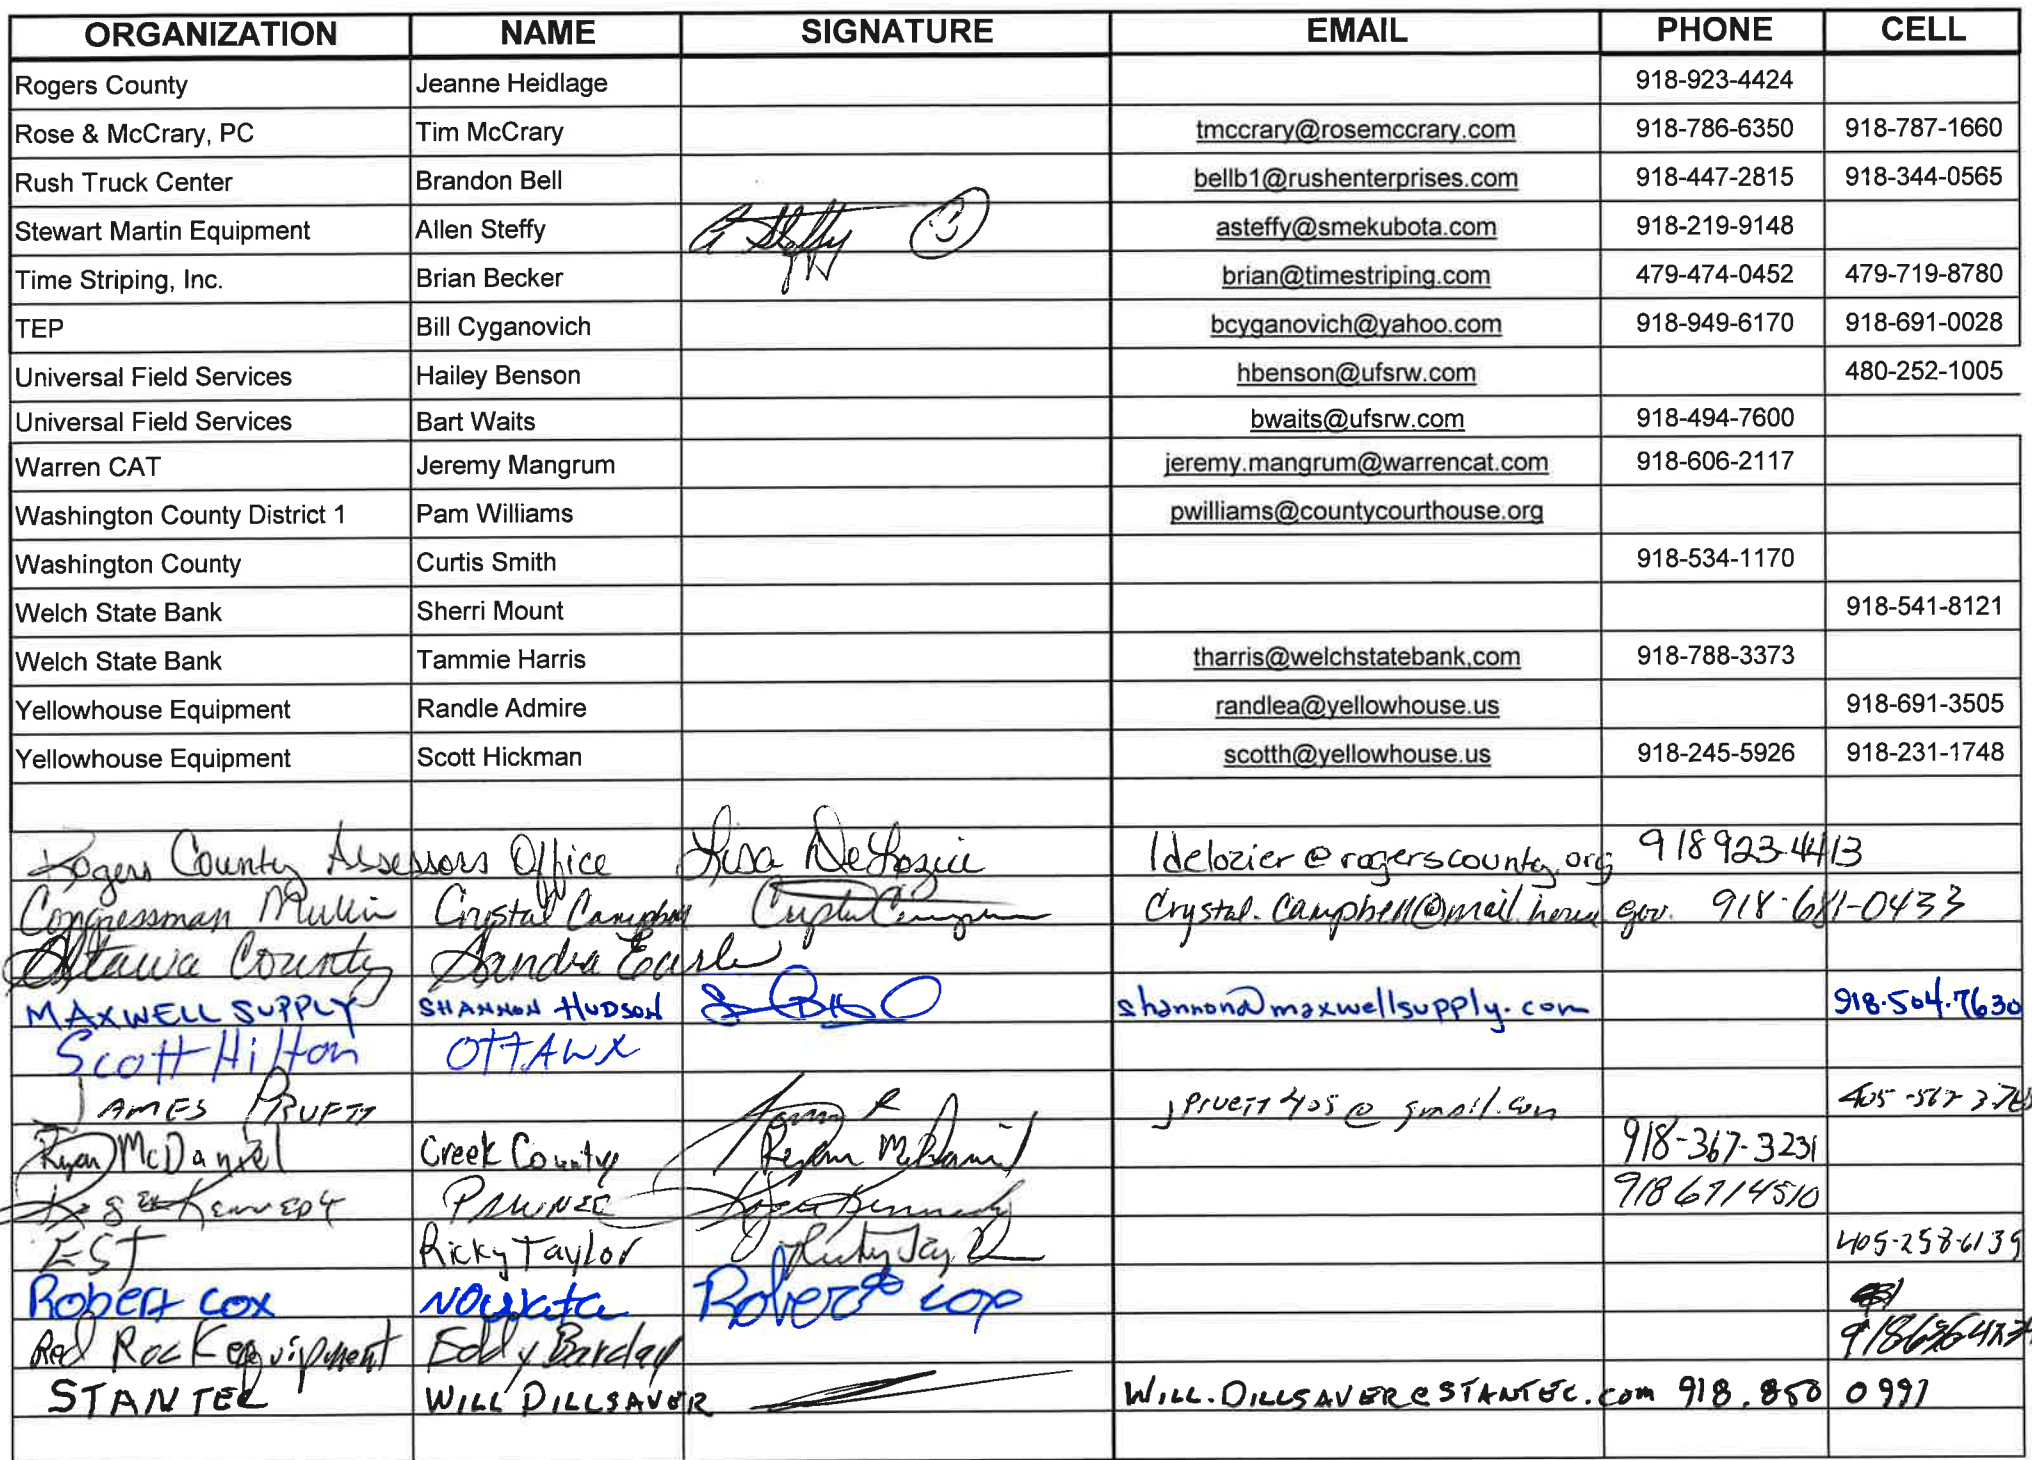 ORGANIZATION NAME SIGNATURE EMAIL PHONE CELL
Rogers County Jeanne Heidlage 918-923-4424
Rose & McCrary, PC Tim McCrary tmccrary@rosemccrary.com 918-786-6350 918-787-1660
Rush Truck Center Brandon Bell bellb1@rushenterprises.com 918-447-2815 918-344-0565
Stewart Martin Equipment Allen Steffy A Steffy asteffy@smekubota.com 918-219-9148
Time Striping, Inc. Brian Becker brian@timestriping.com 479-474-0452 479-719-8780
TEP Bill Cyganovich bcyganovich@yahoo.com 918-949-6170 918-691-0028
Universal Field Services Hailey Benson hbenson@ufsrw.com 480-252-1005
Universal Field Services Bart Waits bwaits@ufsrw.com 918-494-7600
Warren CAT Jeremy Mangrum jeremy.mangrum@warrencat.com 918-606-2117
Washington County District 1 Pam Williams pwilliams@countycourthouse.org
Washington County Curtis Smith 918-534-1170
Welch State Bank Sherri Mount 918-541-8121
Welch State Bank Tammie Harris tharris@welchstatebank.com 918-788-3373
Yellowhouse Equipment Randle Admire randlea@yellowhouse.us 918-691-3505
Yellowhouse Equipment Scott Hickman scotth@yellowhouse.us 918-245-5926 918-231-1748
Rogers County Assessors Office Lisa DeLozier ldelozier@rogerscounty.org 918 923-4413
Congressman Mullin Crystal Campbell Crystal.Campbell@mail.house.gov. 918-681-0433
Ottawa County Sandra Earls
MAXWELL SUPPLY SHANNON HUDSON shannon@maxwellsupply.com 918.504.7630
Scott Hilton OTTAWA
JAMES PRUETT jpruett405@gmail.com
Ryan McDaniel Creek County Ryan McDaniel 918-367-3231
Roger Kennedy PAWNEE Roger Kennedy 9186714510
EST Ricky Taylor 405-258-6139
Robert Cox NOWATA Robert Cox
Red Rock equipment Eddy Barclay
STANTEC WILL DILLSAVER WILL.DILLSAVER@STANTEC.com 918.850 0997